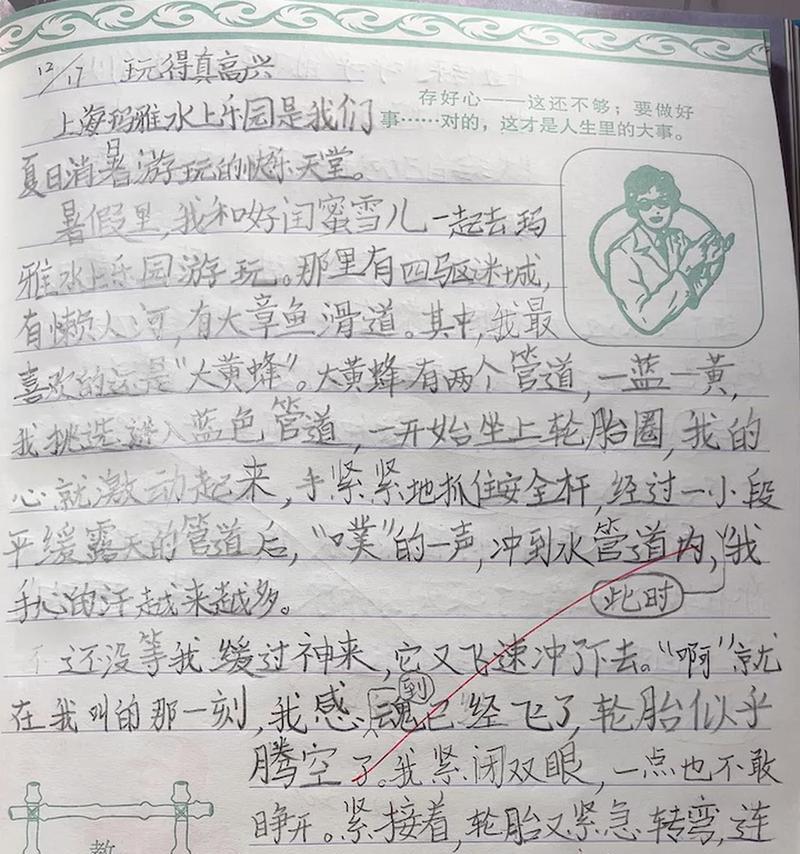 12/17 玩得真高兴
存好心——这还不够；要做好
事……对的，这才是人生里的大事。
上海玛雅水上乐园是我们
夏日消暑游玩的快乐天堂。
暑假里，我和好闺蜜雪儿一起去玛
雅水上乐园游玩。那里有四驱迷城，
有懒人河，有大章鱼滑道。其中，我最
喜欢的还是“大黄蜂”。大黄蜂有两个管道，一蓝一黄，
我挑选进入蓝色管道，一开始坐上轮胎圈，我的
心就激动起来，手紧紧地抓住安全杆，经过一小段
平缓露天的管道后，“噗”的一声，冲到水管道内，我
此时
手心的汗越来越多。
还没等我缓过神来，它又飞速冲了下去。“啊”就
到
在我叫的那一刻，我感魂已经飞了，轮胎似乎
腾空了。我紧闭双眼，一点也不敢
睁开。紧接着，轮胎又紧急转弯，连
教